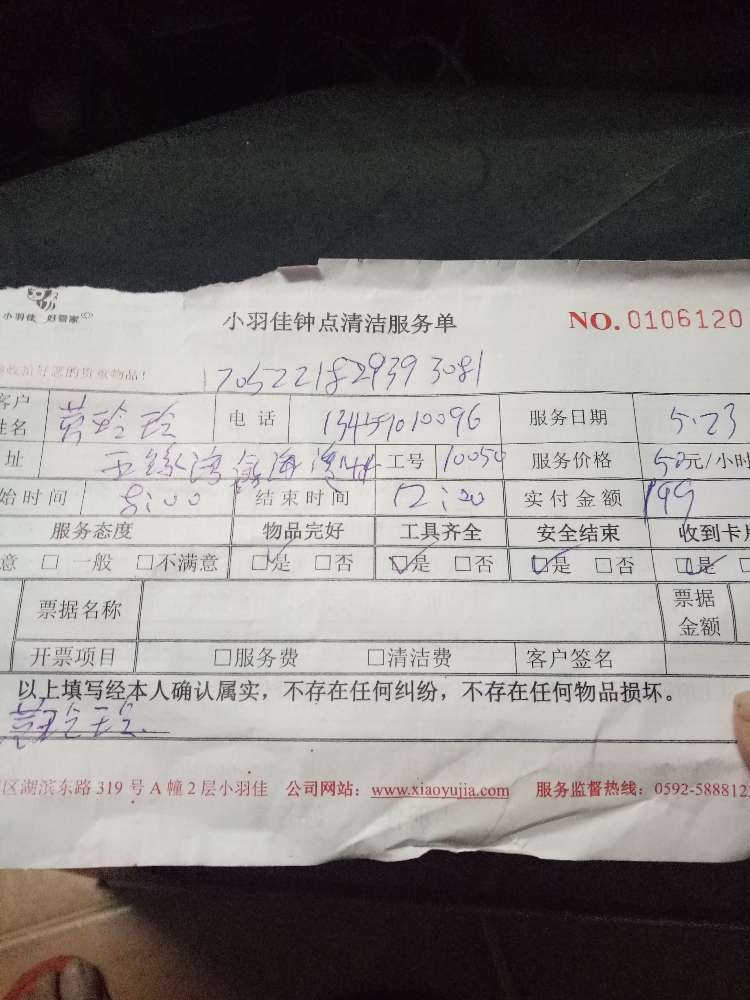 小羽佳 好管家
小羽佳钟点清洁服务单 NO. 0106120
收拾好您的贵重物品！ 170522182939308 1
客户姓名 黄玲玲 电话 13459010096 服务日期 5.23
址 工号 10050 服务价格 50元/小时
始时间 8:00 结束时间 12:00 实付金额 199
服务态度 物品完好 工具齐全 安全结束 收到卡片
意 □ 一般 □不满意 ☑是 □否 ☑是 □否 ☑是 □否 ☑是 □
票据名称 票据金额
开票项目 □服务费 □清洁费 客户签名
以上填写经本人确认属实，不存在任何纠纷，不存在任何物品损坏。
黄玲玲
区湖滨东路 319 号 A 幢 2 层小羽佳 公司网站：www.xiaoyujia.com 服务监督热线：0592-588812